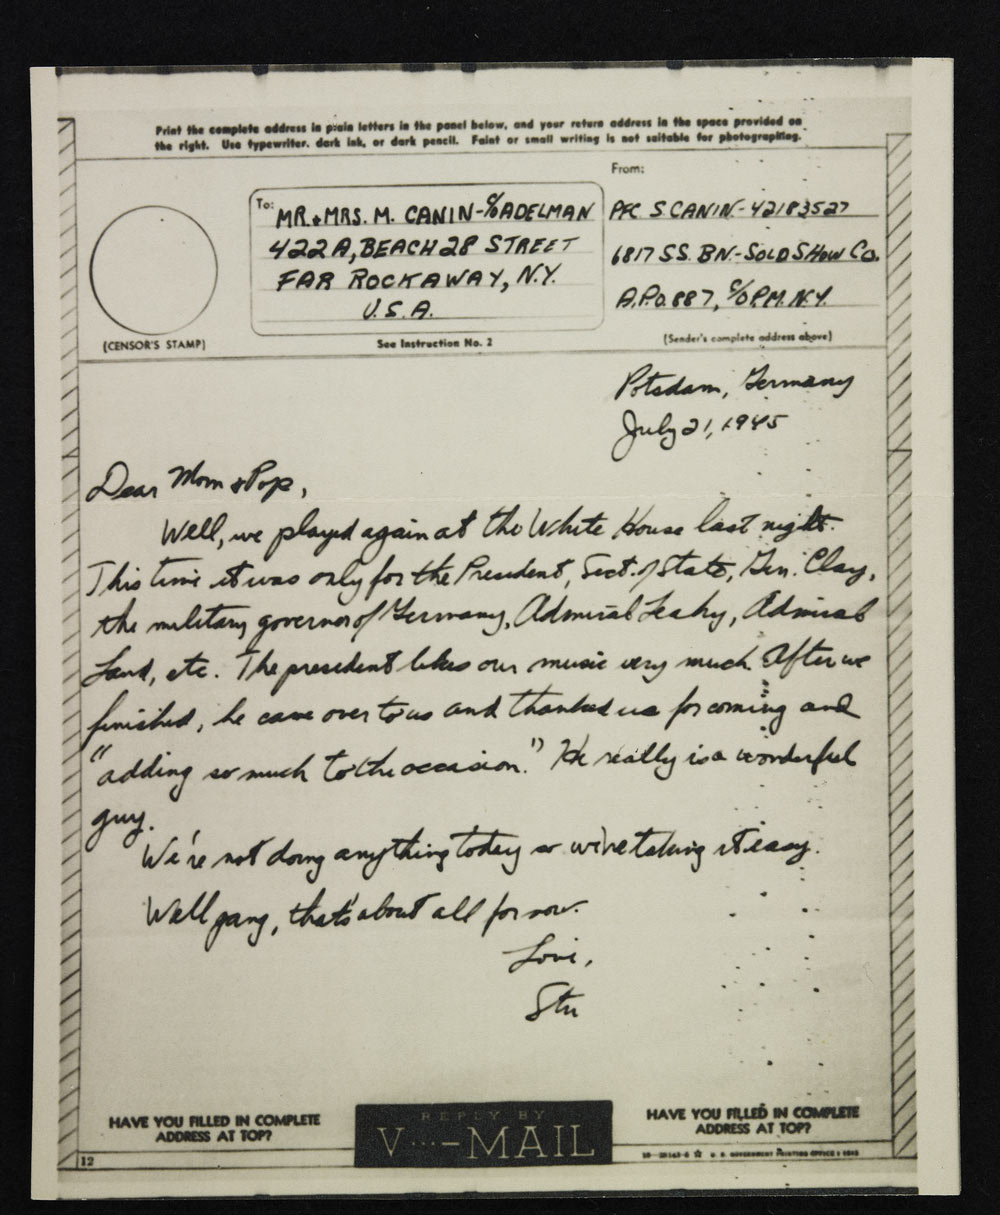 Print the complete address in plain letters in the panel below, and your return address in the space provided on
the right. Use typewriter, dark ink, or dark pencil. Faint or small writing is not suitable for photographing.
To: MR. & MRS. M. CANIN - C/O ADELMAN
422A, BEACH 28 STREET
FAR ROCKAWAY, N.Y.
U.S.A.
(CENSOR'S STAMP)
See Instruction No. 2
From:
PFC S CANIN - 42183527
6817 SS. BN. - SOLD SHOW CO.
A.P.O. 887, C/O P.M. N.Y.
(Sender's complete address above)
Potsdam, Germany
July 21, 1945
Dear Mom & Pop,
Well, we played again at the White House last night.
This time it was only for the President, Sect. of State, Gen. Clay,
the military governor of Germany, Admiral Leahy, Admiral
Land, etc. The president likes our music very much. After we
finished, he came over to us and thanked us for coming and
"adding so much to the occasion." He really is a wonderful
guy.
We're not doing anything today so we're taking it easy.
Well gang, that's about all for now.
Love,
Stu
HAVE YOU FILLED IN COMPLETE
ADDRESS AT TOP?
REPLY BY
V···—MAIL
HAVE YOU FILLED IN COMPLETE
ADDRESS AT TOP?
12
U. S. GOVERNMENT PRINTING OFFICE